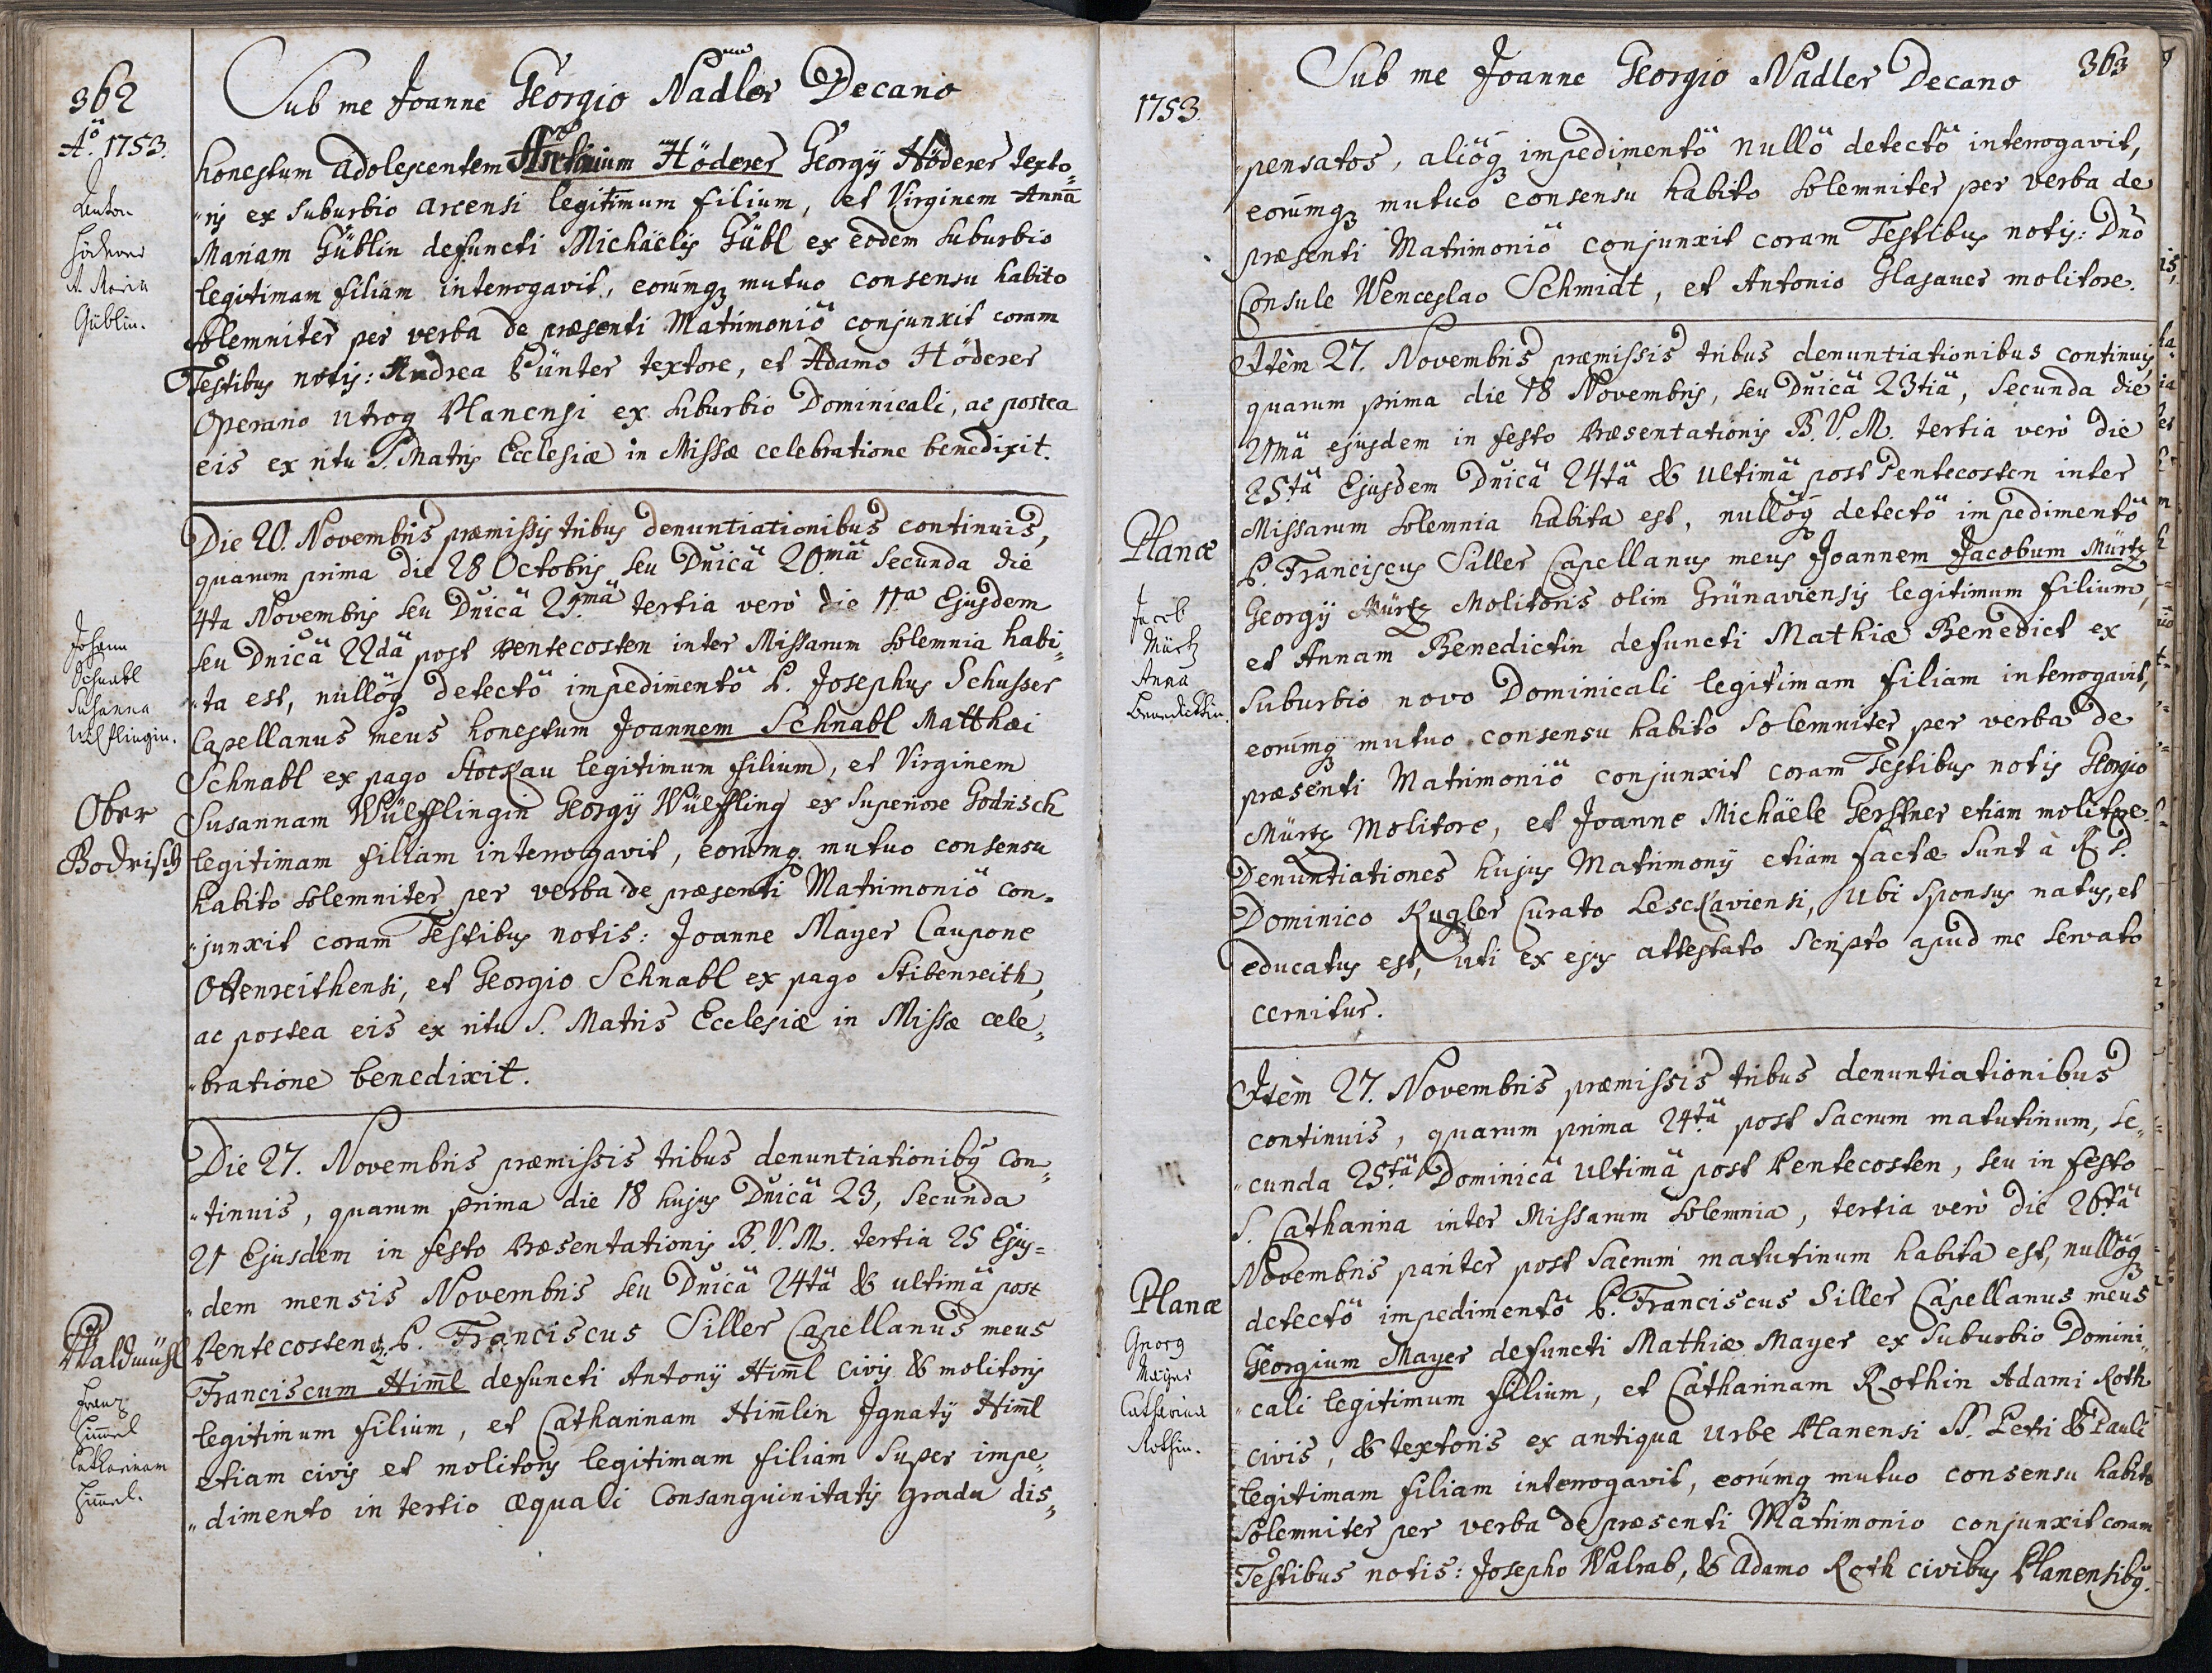 362
Sub me Joanne Georgio Nadler Decano
Aö. 1753.
honestum adolescentem Antonium Höderer Georgÿ Höderer texto„
„ris ex suburbio arcensi legitimum filium, et Virginem Annã
Mariam Güblin defuncti Michäelis Gübl ex eodem suburbio
legitimam filiam interrogavit, eorúmq; mutuo consensu habito
solemniter per verba de præsenti Matrimoniö conjunxit coram
Testibus notis: Andrea Pünter textore, et Adamo Höderer
Operario utroq Planensi ex suburbio Dominicali, ac postea
eis ex ritu S. Matris Ecclesiæ in Missæ celebratione benedixit.
Anton
Höderer
A. Maria
Güblin.
Die 20. Novembris præmissis tribus denuntiationibus continuis,
quarum prima die 28 Octobris seu Dnicä 20.mä secunda die
4ta Novembris seu Dnicä 21.mä tertia verò die 11.a Ejusdem
seu Dnicä 22dä post Pentecosten inter Missarum solemnia habi„
„ta est, nullöq; detectö impedimentö P. Josephus Schusser
Capellanus meus honestum Joannem Schnabl Matthæi
Schnabl ex pago Stockau legitimum filium, et Virginem
Susannam Wülfflingin Georgÿ Wülffling ex superiore Godrisch
legitimam filiam interrogavit, eorúmq; mutuo consensu
habito solemniter per verba de præsenti Matrimoniö con„
„junxit coram Testibus notis: Joanne Mayer Caupone
Ottenreithensi, et Georgio Schnabl ex pago Stibenreith,
ac postea eis ex ritu S. Matris Ecclesiæ in Missæ cele„
„bratione benedixit.
Johann
Schnabl
Susanna
Ober
Godrisch
Die 27. Novembris præmissis tribus denuntiationibq con„
„tinuis, quarum prima die 18 hujus Dnicä 23, secunda
21 Ejusdem in festo Præsentationis B.V.M. tertia 25 Ejus„
„dem mensis Novembris seu Dnicä 24tä & ultimä post
Pentecosten P. Franciscus Siller Capellanus meus
Franciscum Him̄l defuncti Antonÿ Him̄l civis & molitoris
legitimum filium, et Catharinam Him̄lin Ignatÿ Him̄l
etiam civis et molitoris legitimam filiam super impe„
„dimento in tertio æquali Consanguinitatis gradu dis„
Waldmühl
Franz
Him̄el
Catharinam
Him̄el.
Sub me Joanne Georgio Nadler Decano
363
1753.
„pensatos, aliöq; impedimentö nullö detectö interrogavit,
eorúmq; mutuo consensu habito solemniter per verba de
præsenti Matrimoniö conjunxit coram Testibus notis: Dnö
Consule Wenceslao Schmidt, et Antonio Glasauer molitore.
Itèm 27. Novembris præmissis tribus denuntiationibus continuis,
quarum prima die 18 Novembris, seu Dnicä 23tiä, secunda die
21mä ejusdem in festo Præsentationis B.V.M. tertia verò die
25.tä Ejusdem Dnicä 24tä & ultimä post Pentecosten inter
Missarum solemnia habita est, nullöq; detectö impedimentö
P. Franciscus Siller Capellanus meus Joannem Jacobum Mürtz
Georgÿ Mürtz Molitoris olim Grünaviensis legitimum filium,
et Annam Benedictin defuncti Mathiæ Benedict ex
suburbio novo Dominicali legitimam filiam interrogavit,
eorúmq; mutuo consensu habito solemniter per verba de
præsenti Matrimoniö conjunxit coram Testibus notis Georgio
Mürtz Molitore, et Joanne Michäele Gerstner etiam molitore.
Denuntiationes hujus Matrimonÿ etiam factæ sunt à R.P.
Dominico Kugler Curato Lesckaviensi, ubi sponsus natus, et
educatus est, uti ex ejus attestato scripto apud me servato
cernitur.
Planæ
Jacob
Mürtz
Anna
Benedicktin.
Itèm 27. Novembris præmissis tribus denuntiationibus
continuis, quarum prima 24.tä post Sacrum matutinum, se„
„cunda 25.tä Dominicä ultimä post Pentecosten, seu in festo
S. Catharina inter Missarum solemnia, tertia verò die 26tä
Novembris pariter post Sacrum matutinum habita est, nullöq;
detectö impedimentö P. Franciscus Siller Capellanus meus
Georgium Mayer defuncti Mathiæ Mayer ex suburbio Domini„
„cali legitimum filium, et Catharinam Rothin Adami Roth
civis, & textoris ex antiqua urbe Planensi SS. Petri & Pauli
legitimam filiam interrogavit, eorúmq; mutuo consensu habito
Solemniter per verba de præsenti Matrimonio conjunxit coram
Testibus notis: Josepho Walrab, & Adamo Roth civibus Planensibq.
Planæ
Georg
Mayer
Catharina
Rothin.